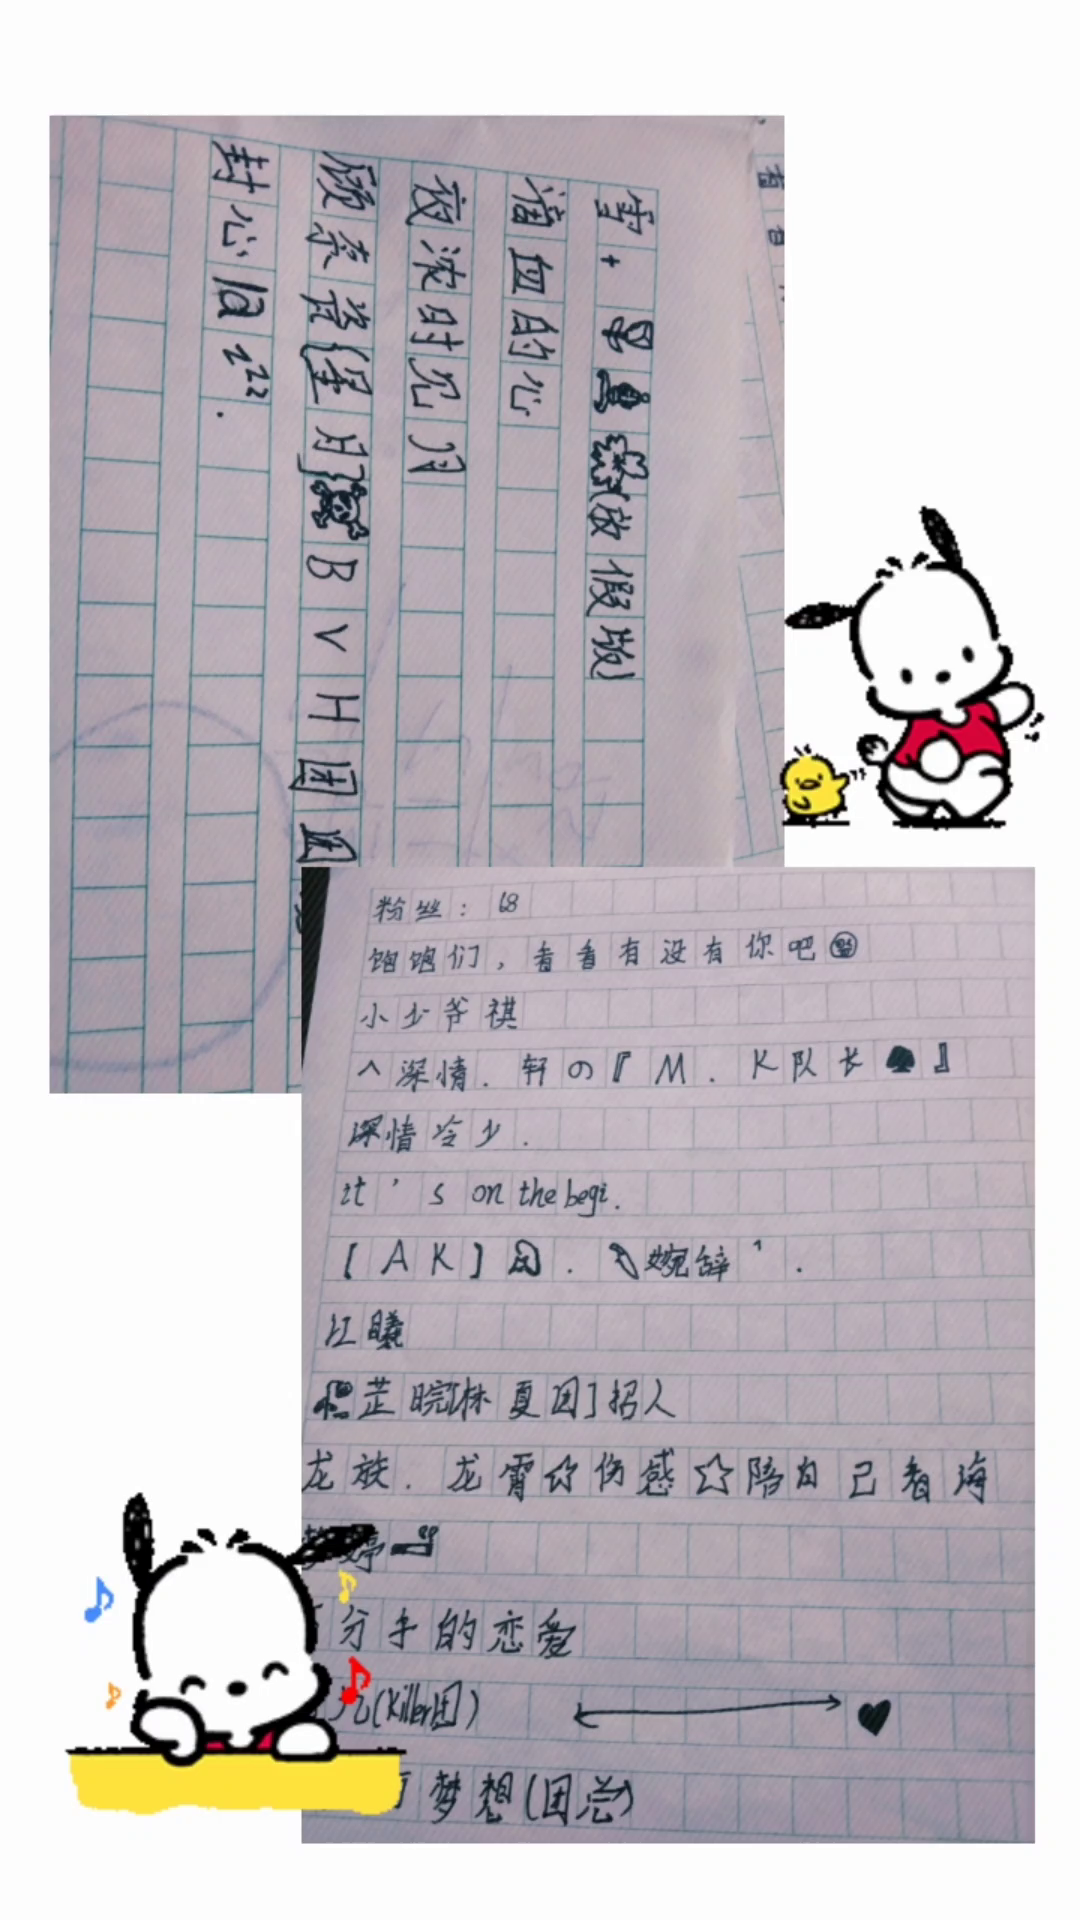 雪+放假版)
滴血的心
夜浓时见月
BVH团团
封心锁zzz.
粉丝：68
饱饱们，看看有没有你吧
小少爷祺
へ深情.轩の『M.K队长♠』
深情冷少.
it's on the begi.
【AK】.婉辞
江曦
芷 夏团]招人
龙族.龙霄☆伤感☆陪自己看海
婷
分手的恋爱
(Killer团) ♥
梦想(团总)